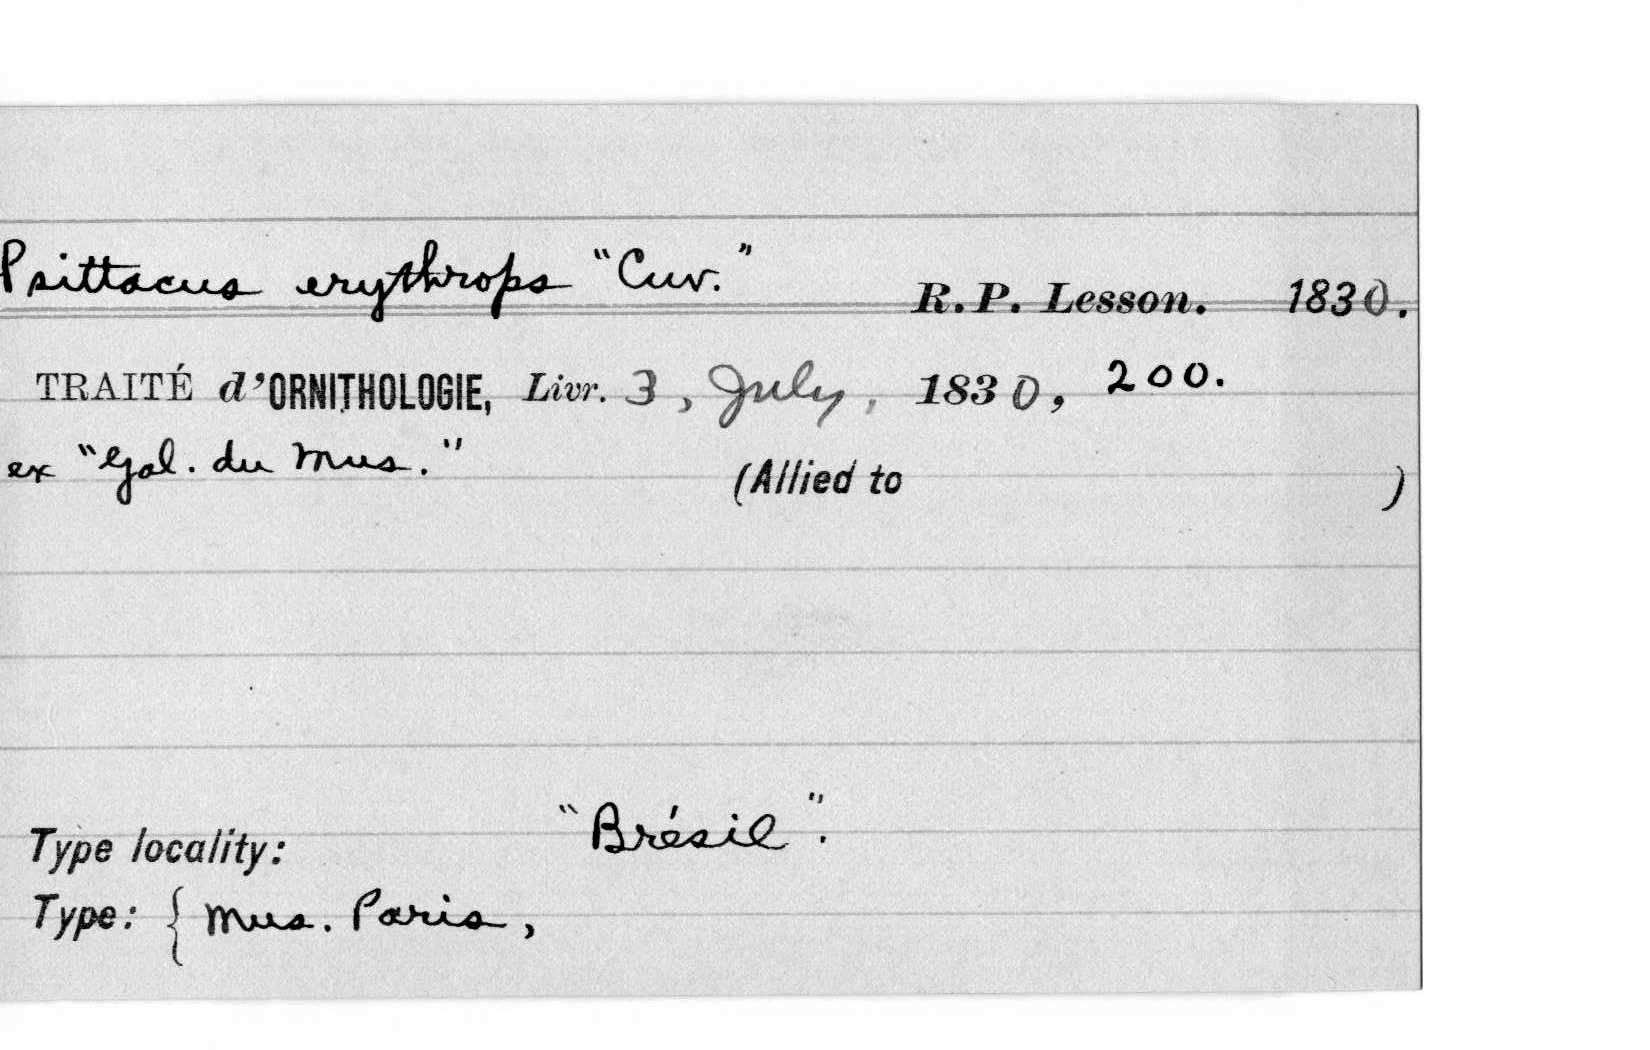 Psittacus erythrops "Cuv." R. P. Lesson. 1830.
TRAITÉ d'ORNITHOLOGIE, Livr. 3, July, 1830, 200.
ex "Gal. du Mus." (Allied to )
Type locality: "Brésil".
Type: { Mus. Paris,